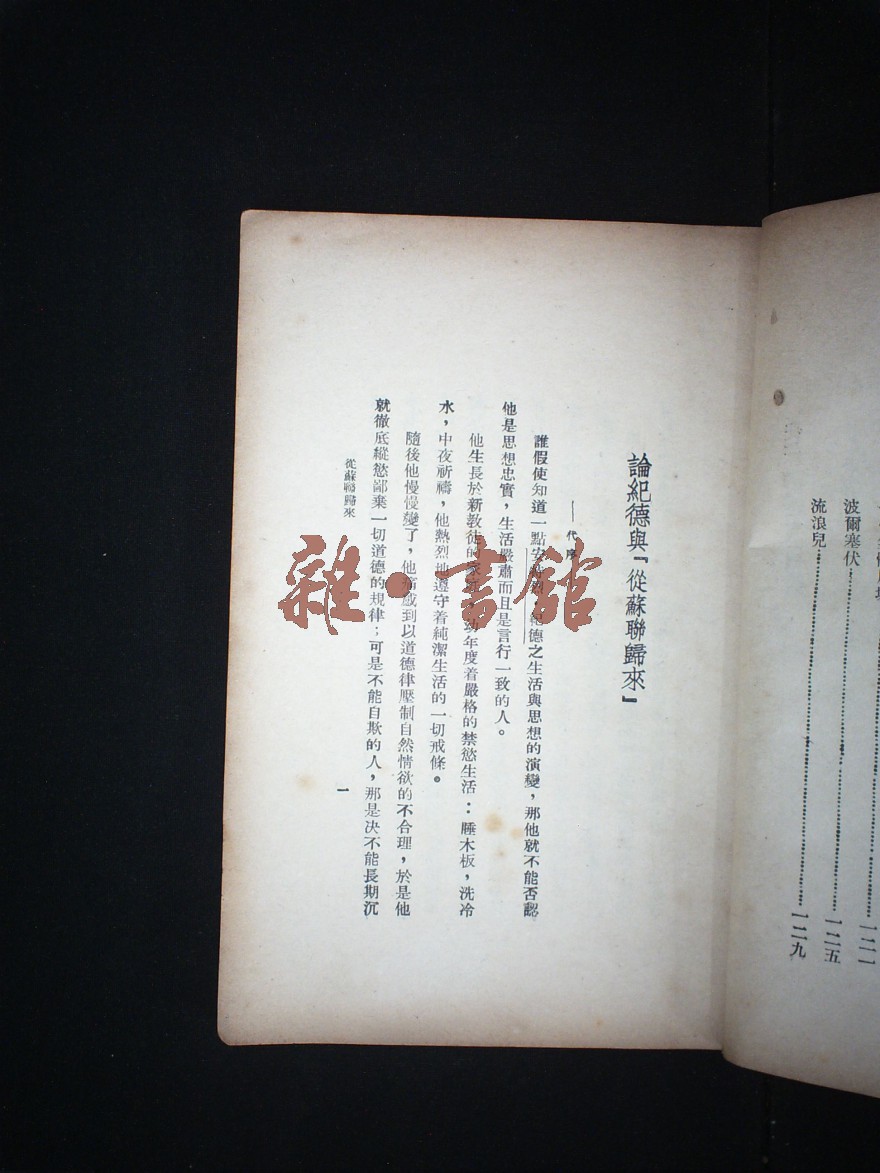 波爾塞伏 一二五
流浪兒 一二九
論紀德與『從蘇聯歸來』
——代序
誰假使知道一點安 紀德之生活與思想的演變，那他就不能否認
他是思想忠實，生活嚴肅而且是言行一致的人。
他生長於新教徒的 幼年度着嚴格的禁慾生活：睡木板，洗冷
水，中夜祈禱，他熱烈地遵守着純潔生活的一切戒條。
隨後他慢慢變了，他 感到以道德律壓制自然情欲的不合理，於是他
就徹底縱慾鄙棄一切道德的規律；可是不能自欺的人，那是决不能長期沉
從蘇聯歸來
一
雜·書館